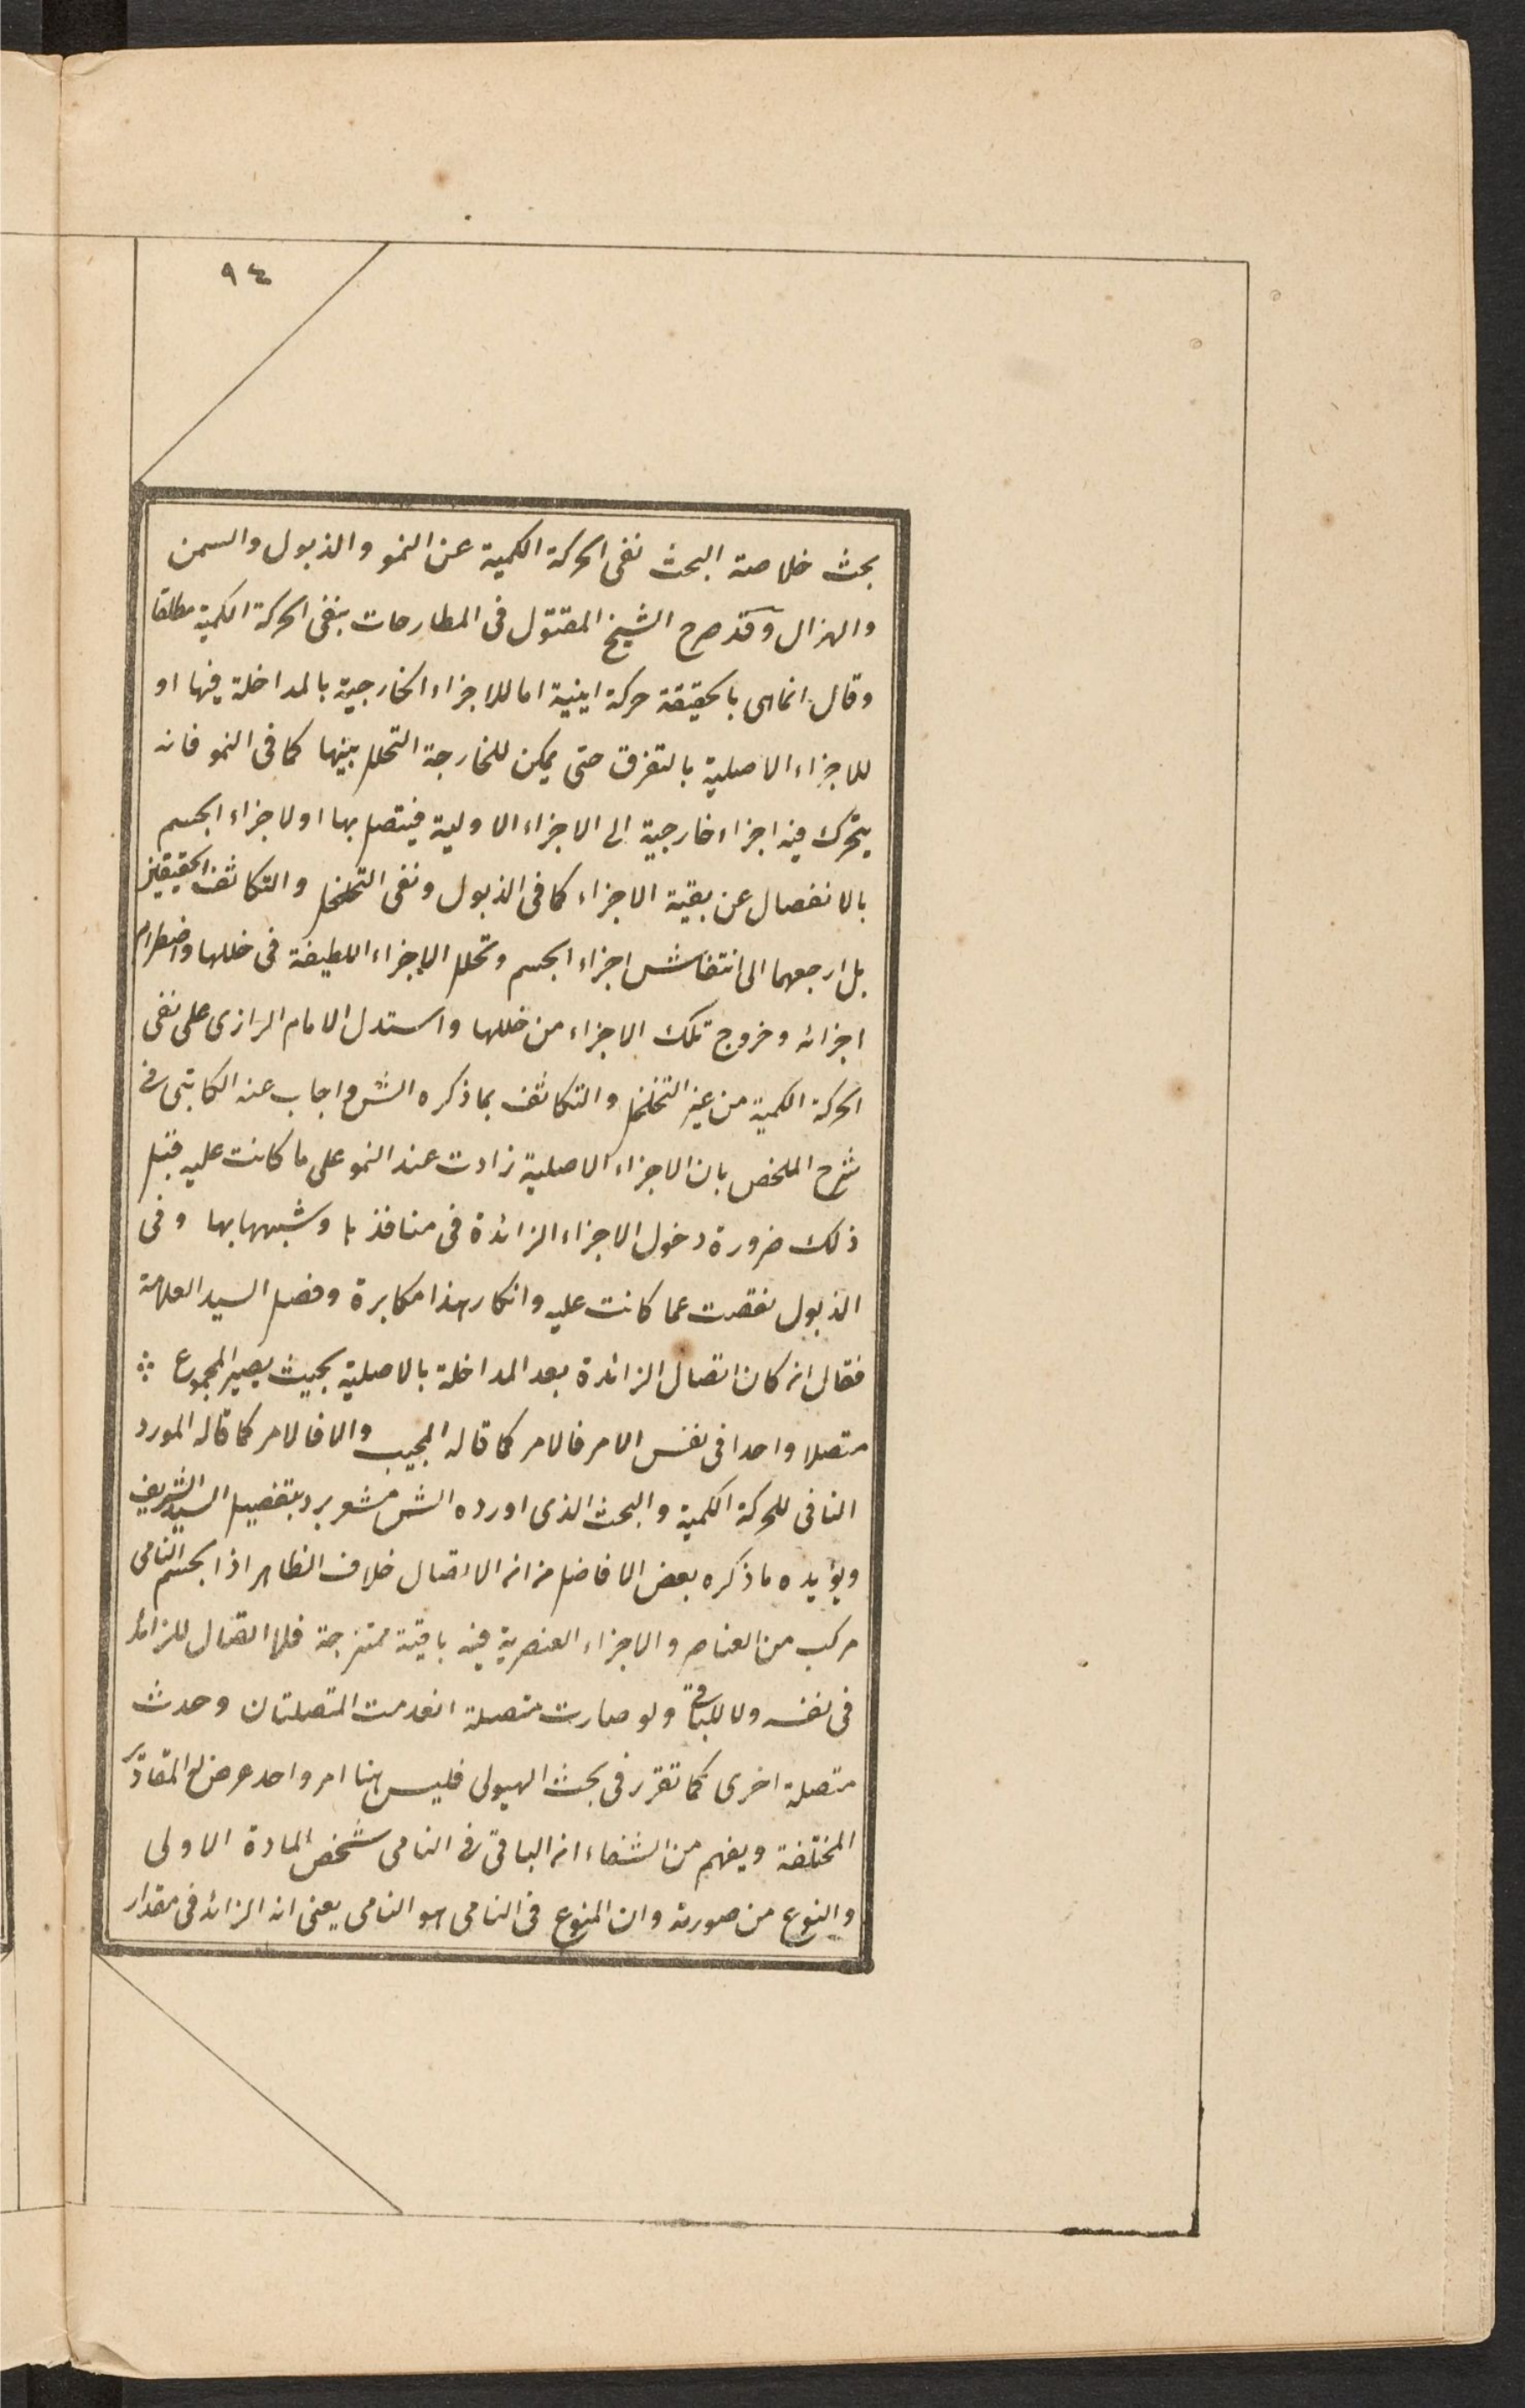 ٩٤
بحث خلاصة البحث نفى الحركة الكمية عن النمو والذبول والسمن
والهزال وقد صرح الشيخ المقتول فى المطارحات بنفى الحركة الكمية مطلقا
وقال انما هى بالحقيقة حركة اينية اما للاجزاء الخارجية بالمداخلة فيها او
للاجزاء الاصلية بالتفرق حتى يمكن للخارجة التخلل بينها كما فى النمو فانه
يتحرك فيه اجزاء خارجية الى الاجزاء الاولية فيتصل بها او لاجزاء الجسم
بالانفصال عن بقية الاجزاء كما فى الذبول ونفى التخلخل والتكاثف الحقيقين
بل ارجعهما الى انتفاش اجزاء الجسم وتخلل الاجزاء اللطيفة فى خللها واضطرام
اجزائه وخروج تلك الاجزاء من خللها واستدل الامام الرازى على نفى
الحركة الكمية من غير التخلخل والتكاثف بما ذكره الش واجاب عنه الكاتبى فى
شرح الملخص بان الاجزاء الاصلية زادت عند النمو على ما كانت عليه قبل
ذلك ضرورة دخول الاجزاء الزائدة فى منافذها وشبهها بها وفى
الذبول نقصت عما كانت عليه وانكار هذا مكابرة وفصل السيد العلامة
فقال انه كان اتصال الزائدة بعد المداخلة بالاصلية بحيث يصير المجموع
متصلا واحدا فى نفس الامر فالامر كما قاله المجيب والا فالامر كما قاله المورد
النافى للحركة الكمية والبحث الذى اورده الش مشعر برد بتفصيل السيد الشريف
ويؤيده ما ذكره بعض الافاضل من انه الاتصال خلاف الظاهر اذ الجسم النامى
مركب من العناصر والاجزاء العنصرية فيه باقية ممتزجة فلا اتصال للزائد
فى نفسه ولا للباقى ولو صارت متصلة انعدمت المتصلتان وحدث
متصلة اخرى كما تقرر فى بحث الهيولى فليس هنا امر واحد عرض له المقادير
المختلفة ويفهم من الشفاء انه الباقى فى النامى شخص المادة الاولى
والنوع من صورته وان المنوع فى النامى هو النامى يعنى انه الزائد فى مقدار